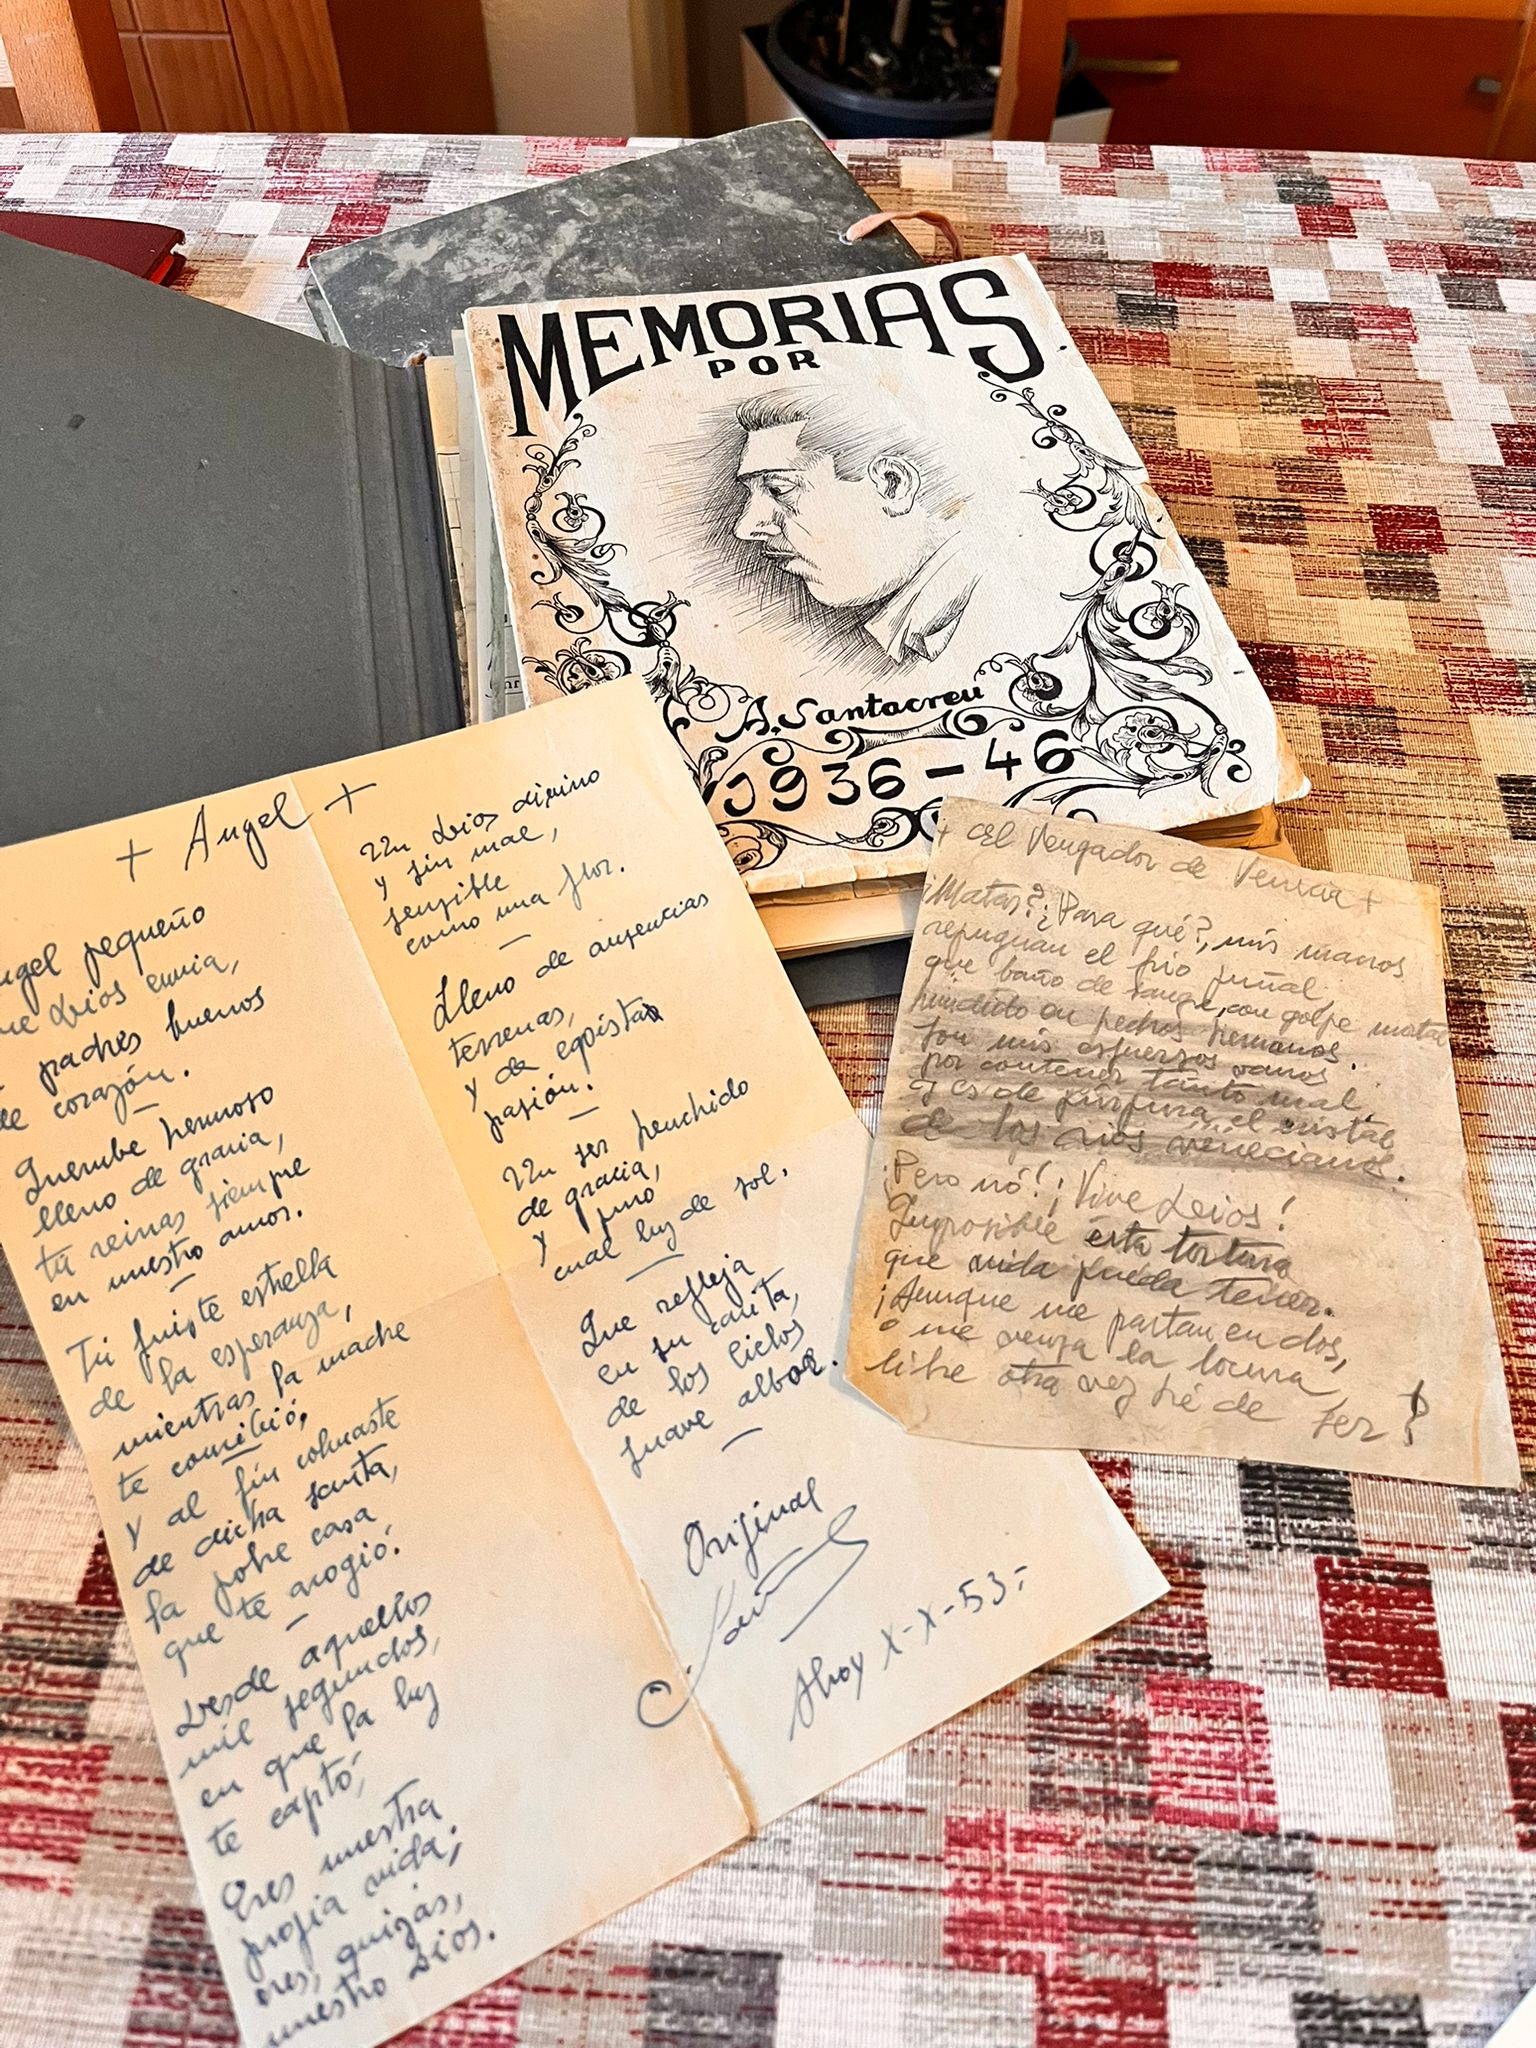 MEMORIAS
POR
A. Santacreu
1936-46
+ Angel +
ngel pequeño
ue Dios envia,
padres buenos
de corazón.
—
Querube hermoso
lleno de gracia,
tú reinas siempre
en nuestro amor.
—
Tú fuiste estrella
de la esperanza,
mientras la madre
te concibió;
—
y al fin colmaste
de dicha santa,
la pobre casa
que te acogió.
—
Desde aquellos
mil segundos,
en que la luz
te captó;
Eres nuestra
propia vida;
eres, quizás,
nuestro Dios.
Un Dios divino
y sin mal,
sensible
como una flor.
—
Lleno de ausencias
terrenas,
y de egoista
pasión.
—
Un ser henchido
de gracia,
y puro
cual luz de sol.
—
Que refleja
en su carita,
de los cielos
suave albor.
—
Original
Hoy X-X-53.-
+ El Vengador de Venecia +
¡Matas? ¿Para qué?, mis manos
repugnan el frio puñal,
que baño de sangre, con golpe mortal
hundido en pechos hermanos.
Son mis esfuerzos vanos
por contener tanto mal,
y es de púrpura, el cristal
de los rios venecianos.
¡Pero nó! ¡Vive Dios!
Imposible esta tortura
que vida pueda tener.
¡Aunque me partan en dos,
o me venza la locura
libre otra vez hé de ser!